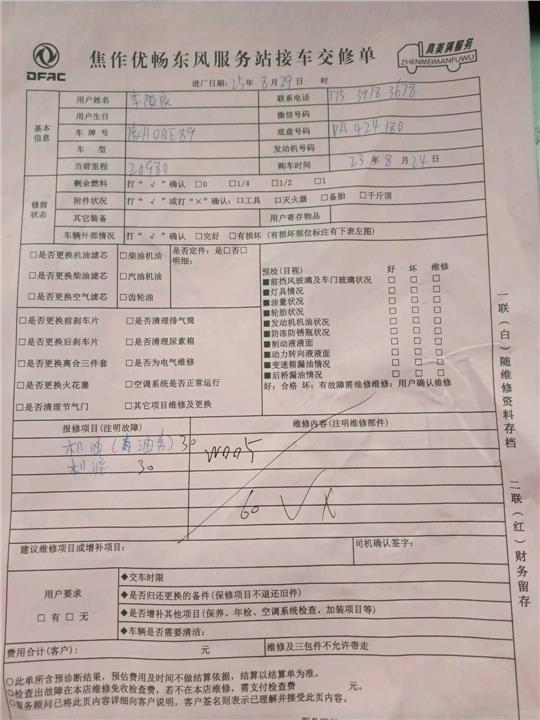 DFAC
焦作优畅东风服务站接车交修单
真美满服务
ZHENMEIMANFUWU
进厂日期：25年8月29日 时
基本信息
用户姓名 联系电话 173 3918 3678
用户生日 微信号码
车牌号 底盘号码 PA424180
车型 发动机号码
当前里程 20980 购车时间 23年8月24日
修前状态
剩余燃料 打“√”确认 □0 □1/4 □1/2 □1
附件状况 打“√”或打“×”确认：□工具 □灭火器 □备胎 □千斤顶
其它装备 用户寄存物品
车辆外部情况 打“√”确认 □完好 □有损坏（有损坏部位标注有下表左图）
□是否更换机油滤芯 □柴油机油 是否定件：是□否□
明细：
□是否更换柴油滤芯 □汽油机油
□是否更换空气滤芯 □齿轮油
□是否更换前刹车片 □是否清理排气筒
□是否更换后刹车片 □是否清理尿素箱
□是否更换离合三件套 □是否为电气维修
□是否更换火花塞 □空调系统是否正常运行
□是否清理节气门 □其它项目维修及更换
预检（目视） 好 坏 维修
■前挡风玻璃及车门玻璃状况 □ □ □
■灯具情况 □ □ □
■油量状况 □ □ □
■轮胎状况 □ □ □
■发动机机油状况 □ □ □
■防冻防锈瓶状况 □ □ □
■制动液液面 □ □ □
■动力转向液液面 □ □ □
■变速箱漏油情况 □ □ □
■后桥漏油情况 □ □ □
好：合格 坏：有故障需维修维修：用户确认维修
报修项目（注明故障） 维修内容（注明维修部件）
机油 30 W005
机滤 30
60
建议维修项目或增补项目： 司机确认签字：
用户要求
□有 □无
◆交车时限
◆是否归还更换的备件（保修项目不退还旧件）
◆是否增补其他项目（保养、年检、空调系统检查、加装项目等）
◆车辆是否需要清洁：
费用合计（客户）： 元 维修及三包件不允许带走
○此单所含预诊断结果，预估费用及时间不做结算依据，结算以结算单为准。
○检查出故障在本店维修免收检查费，若不在本店维修，需支付检查费 元。
○服务顾问已将此页内容详细向客户说明，客户签名则表示已理解并接受此页内容。
一联（白）随维修资料存档
二联（红）财务留存